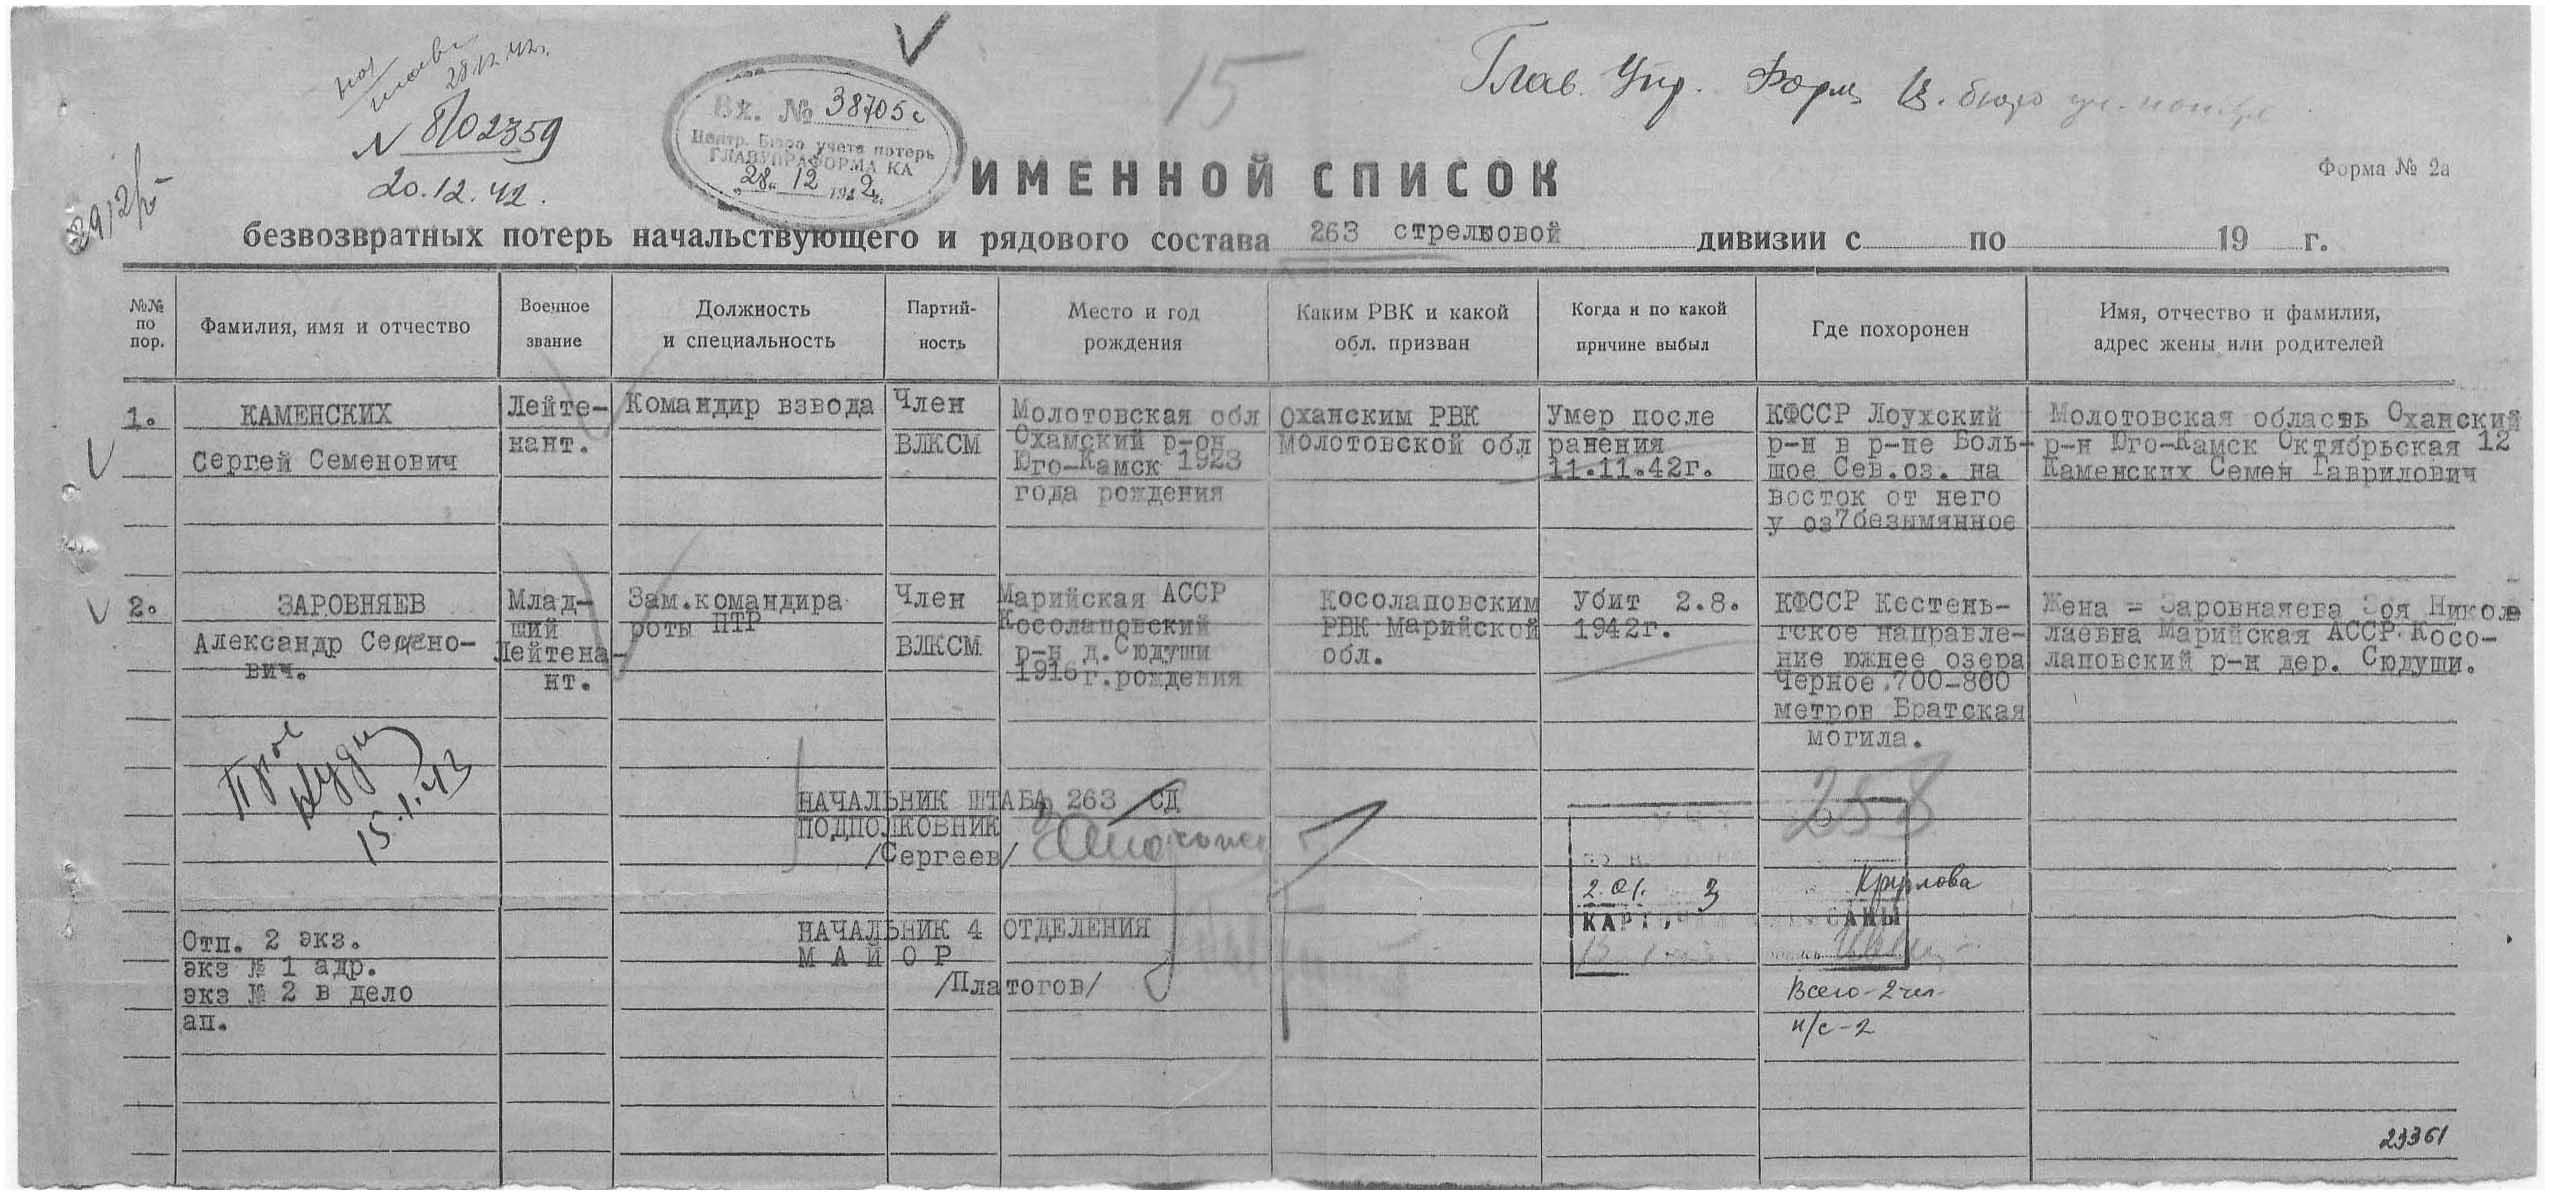 28.12.42.
N 8/02359
20.12.42.
Вх. № 38705с
Центр. Бюро учета потерь
ГЛАВУПРАФОРМА КА
„28" 12 1942г.
15
Глав. Упр. Форм Ц. бюро
Форма № 2а
ИМЕННОЙ СПИСОК
безвозвратных потерь начальствующего и рядового состава 263 стрелковой дивизии с по 19 г.
№№ по пор.
Фамилия, имя и отчество
Военное звание
Должность и специальность
Партий- ность
Место и год рождения
Каким РВК и какой обл. призван
Когда и по какой причине выбыл
Где похоронен
Имя, отчество и фамилия, адрес жены или родителей
1.
КАМЕНСКИХ
Сергей Семенович
Лейте-
нант.
Командир взвода
Член
ВЛКСМ
Молотовская обл
Охамский р-он
Юго-Камск 1923
года рождения
Оханским РВК
молотовской обл
Умер после
ранения
11.11.42г.
КФССР Лоухский
р-н в р-не Боль-
шое Сев.оз. на
восток от него
у оз7безымянное
Молотовская область Оханский
р-н Юго-Камск Октябрьская 12
Каменских Семен Гаврилович
2.
ЗАРОВНЯЕВ
Александр Семено-
вич.
Млад-
ший
Лейтена-
нт.
Зам.командира
роты ПТР
Член
ВЛКСМ
Марийская АССР
Косолаповский
р-н д.Сюдуши
1916г.рождения
Косолаповским
РВК Марийской
обл.
Убит 2.8.
1942г.
КФССР Кестень-
гское направле-
ние южнее озера
Черное.700-800
метров Братская
могила.
Жена = Заровнаяева Зоя Никола
лаевна Марийская АССР.Косо-
лаповский р-н дер. Сюдуши.
15.1.43
НАЧАЛЬНИК ШТАБА 263 СД
ПОДПОЛКОВНИК
/Сергеев/
258
2.01. 3
Крылова
НАЧАЛЬНИК 4 ОТДЕЛЕНИЯ
М А Й О Р
/Платогов/
Отп. 2 экз.
экз № 1 адр.
экз № 2 в дело
ап.
Всего-2чел-
н/с-2
23361